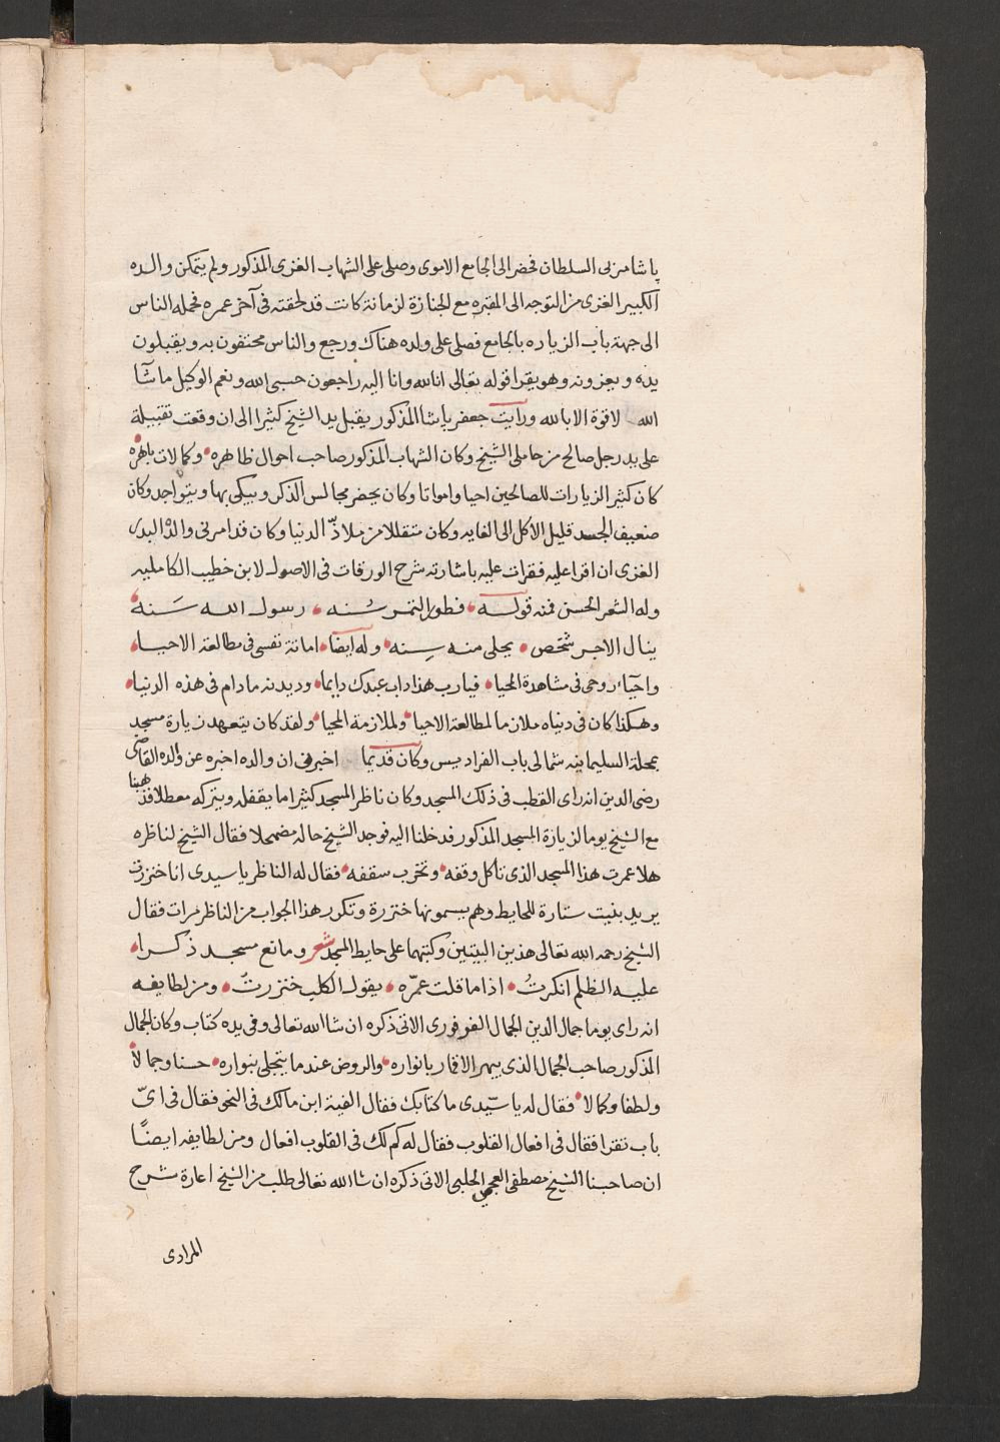 باشا مربى السلطان فحضر الى الجامع الاموى وصلى على الشهاب الغزى المذكور ولم يتمكن والده
الكبير الغزى من التوجه الى المقبره مع الجنازة لزمانة كانت قد لحقته فى آخر عمره فحمله الناس
الى جهة باب الزياره بالجامع فصلى على ولده هناك ورجع والناس محتفون به ويقبلون
يده ويعزونه وهو يقرا قوله تعالى انا لله وانا اليه راجعون حسبى الله ونعم الوكيل ما شآ
الله لا قوة الا بالله ورايت جعفر باشا المذكور يقبل يد الشيخ كثيرا الى ان وقعت تقبيلة
على يد رجل صالح من حاملى الشيخ وكان الشهاب المذكور صاحب احوال ظاهره وكمالات باهره
كان كثير الزيارات للصالحين احيا وامواتا وكان يحضر مجالس الذكر ويبكى بها ويتواجد وكان
ضعيف الجسد قليل الأكل الى الغايه وكان متقللا من ملاذّ الدنيا وكان قد امرنى والدُه البدر
الغزى ان اقرا عليه فقرات عليه باشارته شرح الورقات فى الاصول لابن خطيب الكامليه
وله الشعر الحسن فمنه قوله فطور التمر سُنه رسول الله سَنهُ
ينال الاجر شخص يحلى منه سِنه وله ايضا اماتة نفسى فى مطالعة الاحيا
واحيآء روحى فى مشاهدة المحيا فيارب هذا داب عبدك دايما وديدنه مادام فى هذه الدنيا
وهكذا كان فى دنياه ملازما لمطالعة الاحيا ولملازمة المحيا ولقد كان يتعهد زيارة مسجد
بمحلة السليمانيه شمالى باب الفراديس وكان قديما اخبرنى ان والده اخبره عن والده القاضى
رضى الدين انه راى القطب فى ذلك المسجد وكان ناظر المسجد كثيرا ما يقفله ويتركه معطلا فذهبنا
مع الشيخ يوما لزيارة المسجد المذكور فدخلنا اليه فوجد الشيخ حاله مضمحلا فقال الشيخ لناظره
هلا عمرت هذا المسجد الذى تاكل وقفه وتخرب سقفه فقال له الناظر يا سيدى انا خنزرت
يريد بنيت ستارة للحايط وهم يسمونها خنزرة وتكرر هذا الجواب من الناظر مرات فقال
الشيخ رحمه الله تعالى هذين البيتين وكتبهما على حايط المسجد شعر ومانع مسجد ذكرا
عليه الظلم انكرتُ اذا ما قلت عمّره يقول الكلب خنزرتُ ومن لطايفه
انه راى يوما جمال الدين الجمال الفرفورى الاتى ذكره ان شا الله تعالى وفى يده كتاب وكان الجمال
المذكور صاحب الجمال الذى يبهر الاقمار بانواره والروض عندما يتجلى بنواره حسنا وجمالا
ولطفا وكمالا فقال له يا سيّدى ما كتابك فقال الفية ابن مالك فى النحو فقال فى اىّ
باب تقرا فقال فى افعال القلوب فقال له كم لك فى القلوب افعال ومن لطايفه ايضًا
ان صاحبنا الشيخ مصطفى العجمى الحلبى الاتى ذكره ان شا الله تعالى طلب من الشيخ اعارة شرح
المرادى